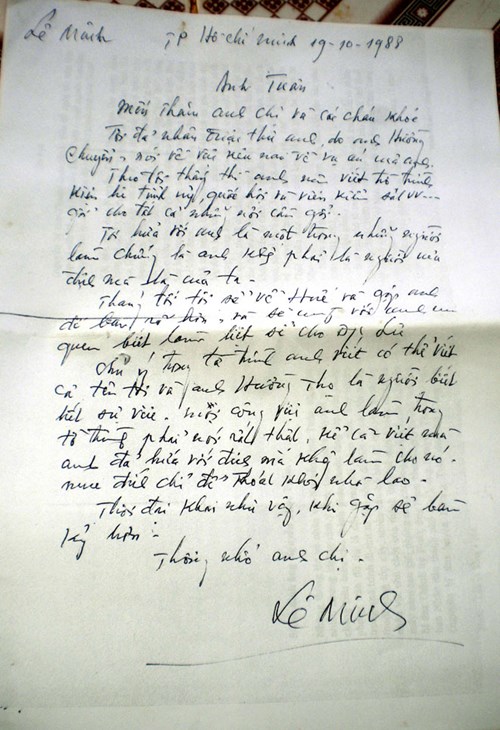 Lê Minh TP Hồ chí minh 19-10-1988
Anh Tuấn
mến thăm anh chị và các cháu khỏe
Tôi đã nhận được thư anh, do anh Hường
chuyển, nói về vấn và vụ án mà anh
Theo tôi thằng thì anh nên viết tờ trình
kiến bí tỉnh ủy, quốc hội và viện kiểm sát vv---
gởi cho tất cả những nơi cần gởi.
Tôi hứa với anh là một trong những người
làm chứng là anh không phải là người của
địch mà là của ta -
Tháng tới tôi sẽ về Huế và gặp anh
để bàn rõ hơn, và sẽ cùng với anh em
quen biết làm hết sẽ cho
Chú ý trong tờ trình anh viết có thể viết
cả tên tôi và anh Hường Thọ là người biết
hết sự việc. mọi công việc anh làm trong
tờ trình phải nói rất thật, kể cả việc mà
anh đã hứa với địch mà không làm cho nó.
mưu địch chỉ để thoát khỏi nhà lao -
Thời đại khái như vậy, khi gặp sẽ bàn
kỷ hơn.
Thông nhớ anh chị.
Lê Minh